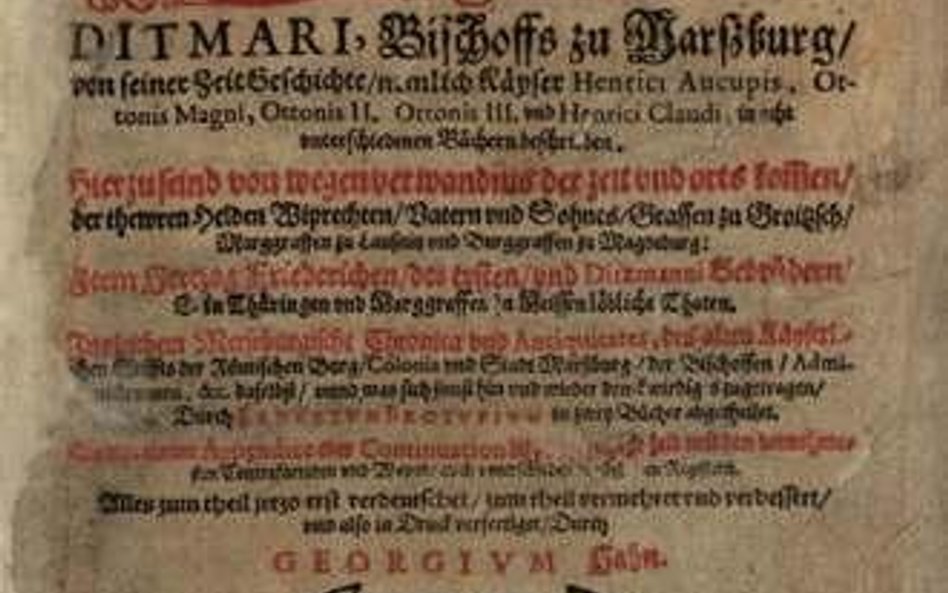 DITMARI, Bischoffs zu Marßburg/
von seiner Zeit Geschichte/ Käyser Henrici Aucupis, Ot-
tonis Magni, Ottonis II. Ottonis III. vnd Henrici Claudi, in acht
vnterschiedenen Büchern
Hierzu seind von wegen verwandnus der zeit vnd orts kommen/
der thewren Helden Wiprechten/ Vatern vnd Sohnes/ Graffen zu Groitzsch/
Marggraffen zu Lausnitz vnd Burggraffen zu Magdeburg:
Ferrn Hertzog Friederichen/ des ersten/ vnd Ditzmanni Gebrüdern/
L. in Thüringen vnd Marggraffen in Meissen löbliche Thaten.
Chronica vnd Antiquitates, des alten Käyserl-
chen Stiffts der Römischen Burg/ Colonia vnd Stadt Marßburg/ der Bischoffen/ Admi-
&c. daselbst/ vnnd was sich sonst hin vnd wieder zugetragen/
Durch in zwey Bücher abgetheilet.
Continuation
vnd
Alles zum theil jetzo erst verdeutschet/ zum theil vermehret vnd verbessert/
vnd also in Druck verfertiget/ Durch
GEORGIVM Hahn.